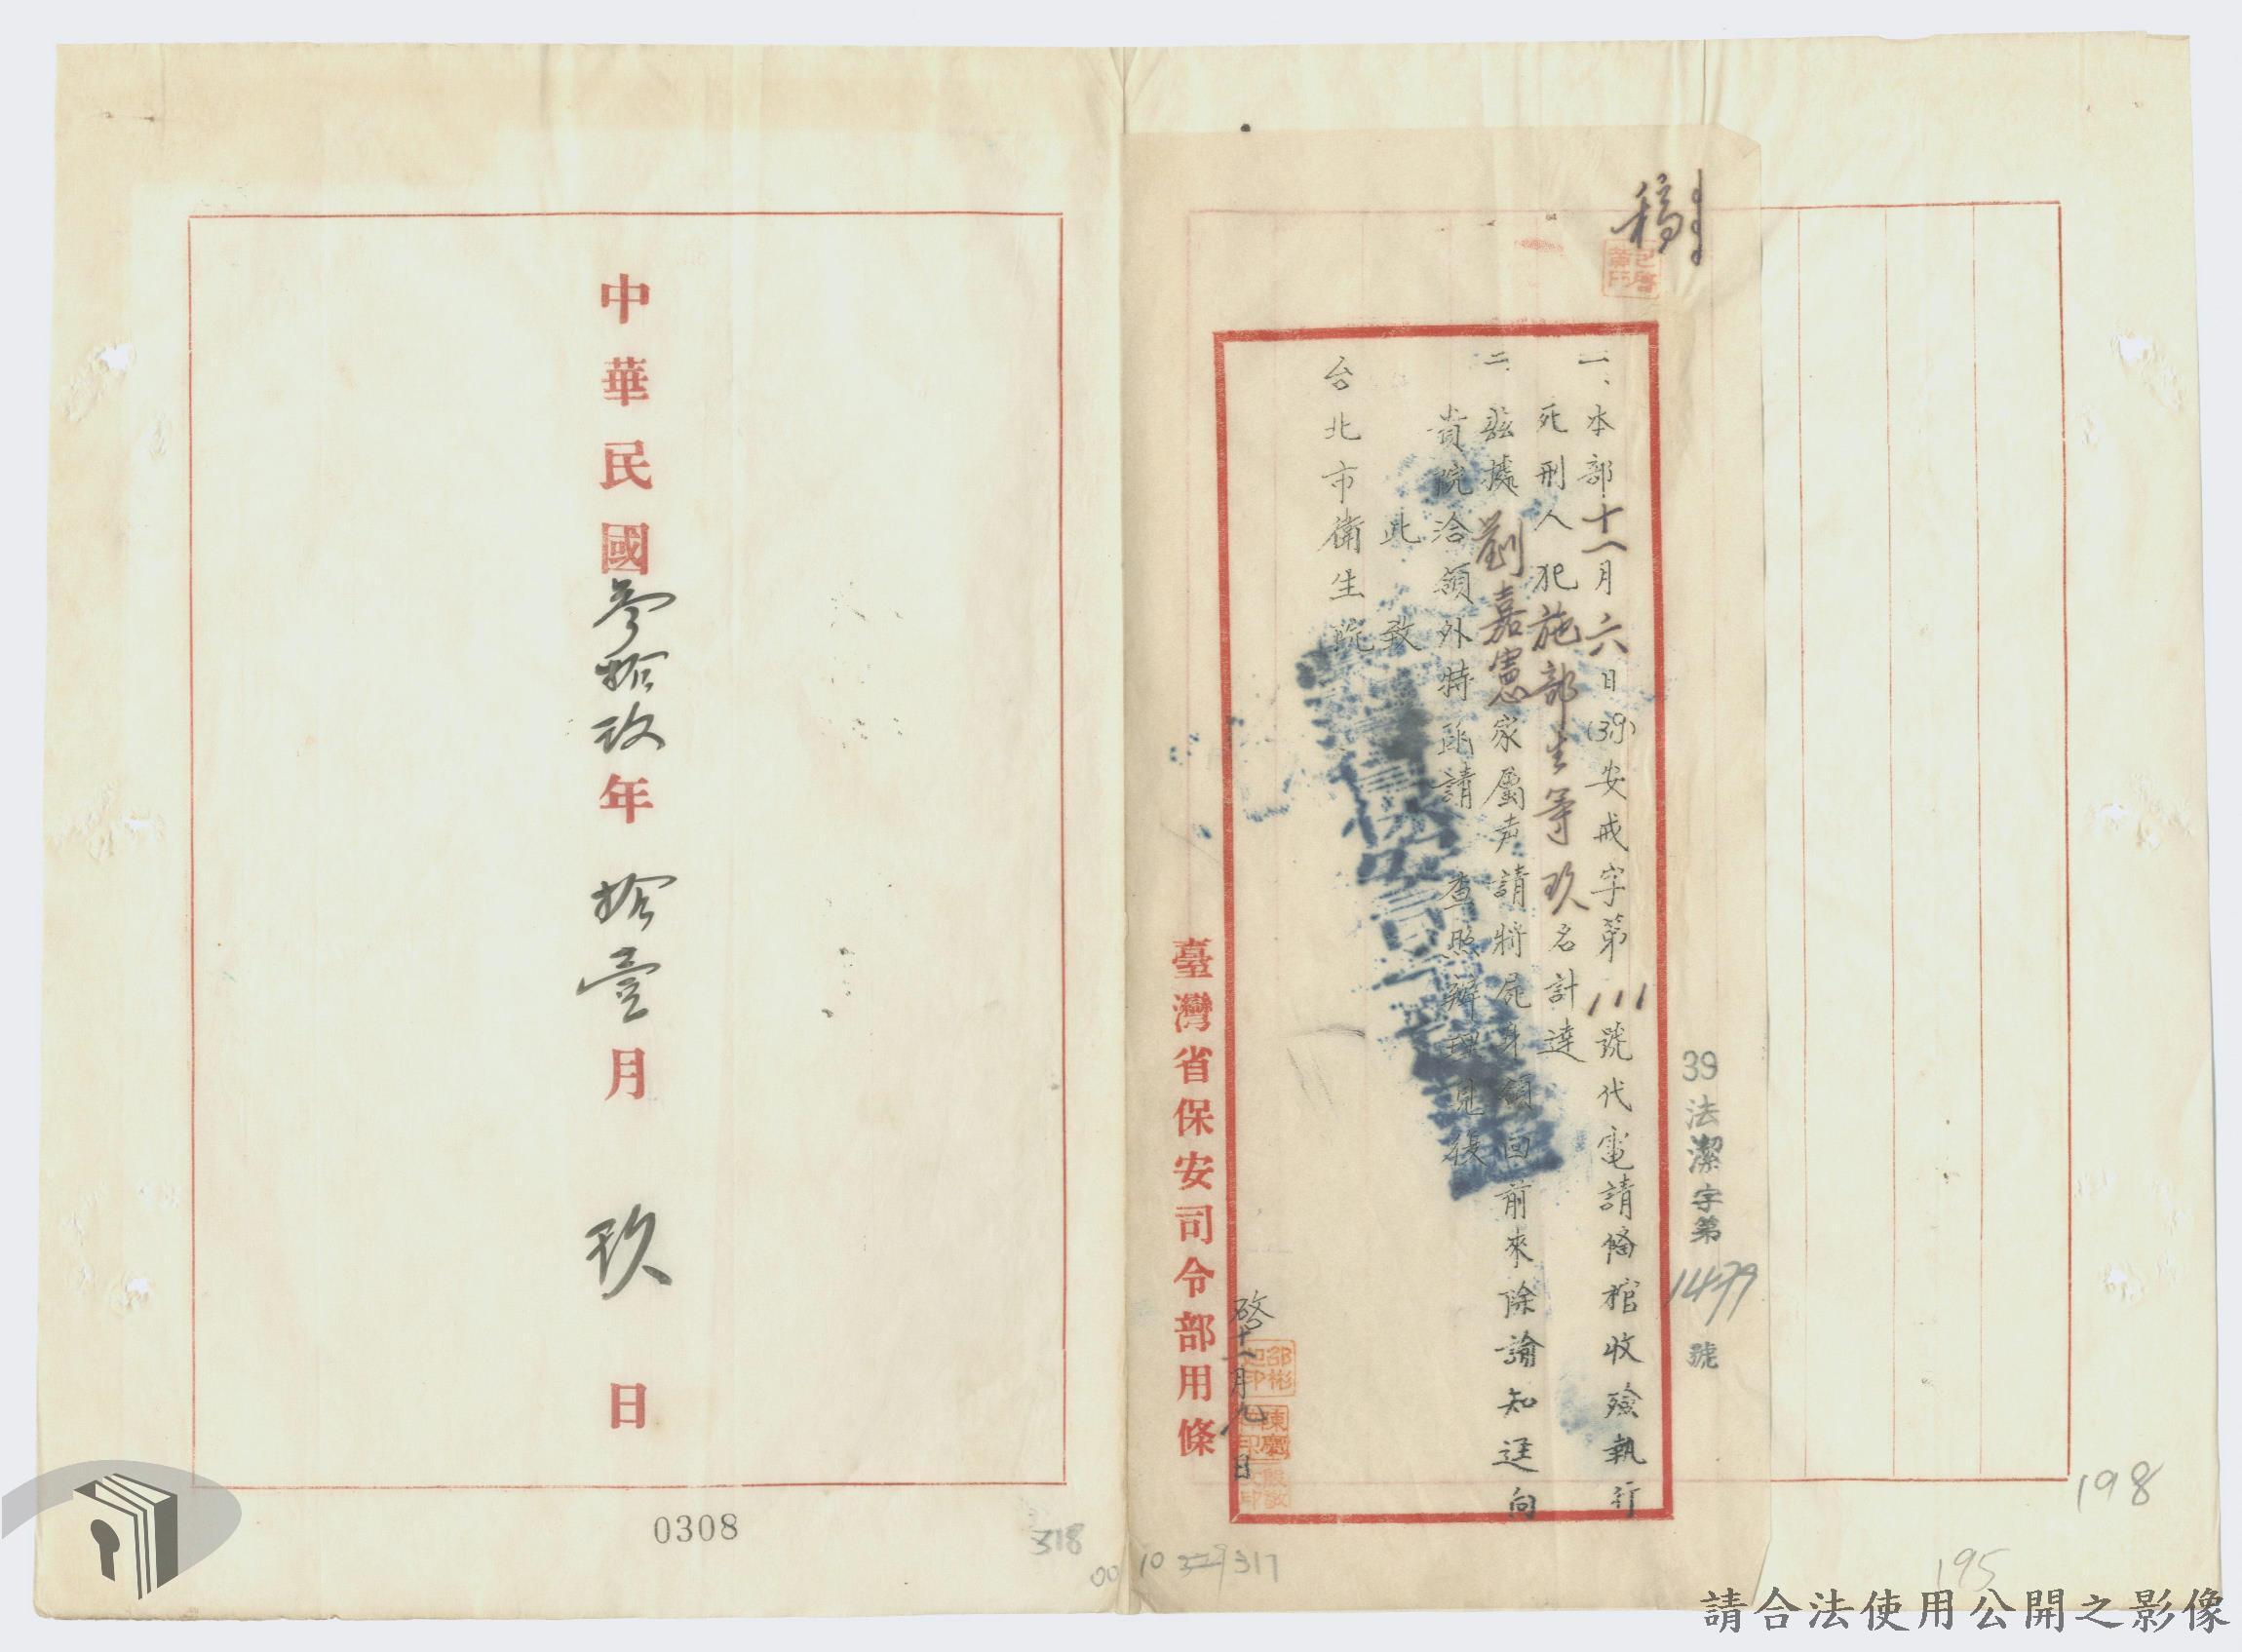 稿
39法潔字第1479號
一、本部十一月六日(39)安戒字第111號代電請俻棺收殮執行
死刑人犯施部生等玖名計達
二、茲據劉嘉憲家屬声請將屍身領回前來除諭知逕向
貴院洽領外特函請查照辦理見復
此致
台北市衛生院
啓十一月九日
臺灣省保安司令部用條
中華民國叁拾玖年拾壹月玖日
0308
318
00
10
317
198
195
請合法使用公開之影像